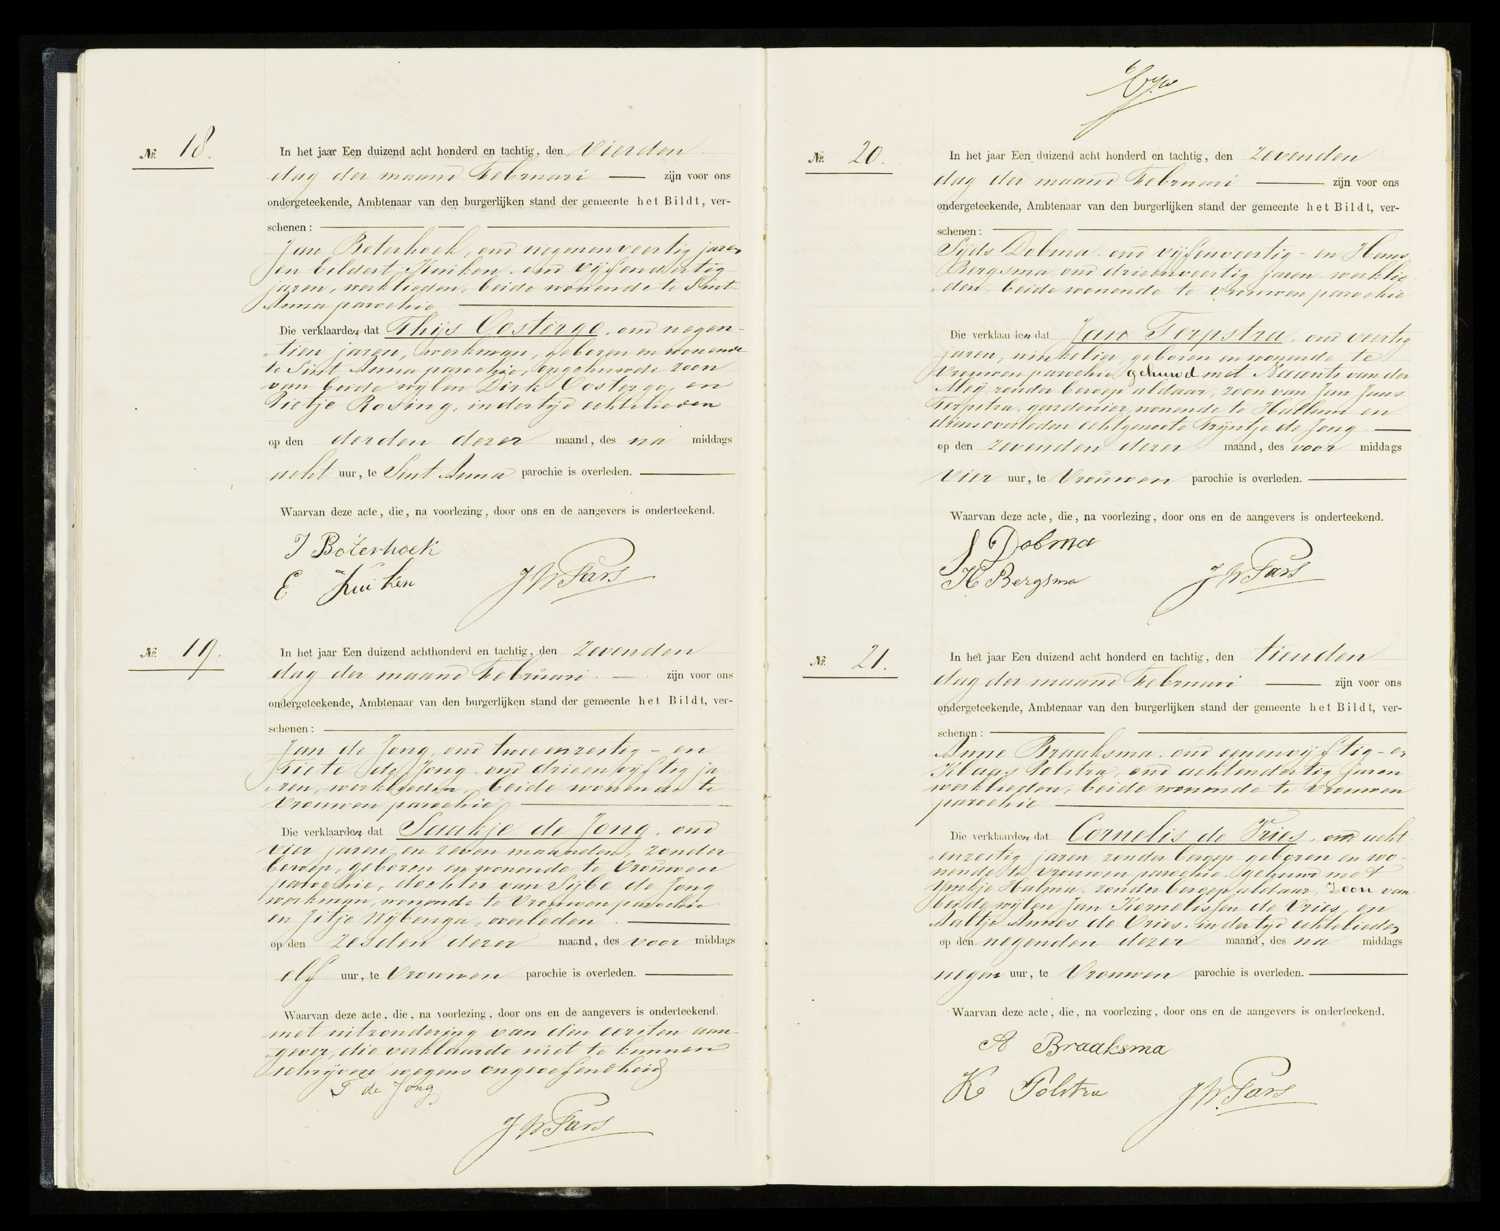 № 18.
In het jaar Een duizend acht honderd en tachtig, den vierden
dag der maand Februari — zijn voor ons
ondergeteekende, Ambtenaar van den burgerlijken stand der gemeente het Bildt, ver-
schenen:
Jan Boterhoek, oud negenenveertig jaren
en Eeldert Kuiken oud vijfendertig
jaren, werklieden, beide wonende te Sint
Anna parochie
Die verklaarden dat Thijs Oosterga, oud negen-
tien jaren, werkman, geboren en wonende
te Sint Anna parochie, ongehuwde zoon
van beide wylen Dirk Oosterga, en
Pietje Rosing, indertyd echtelieden
op den derden dezer maand, des na middags
acht uur, te Sint Anna parochie is overleden.
Waarvan deze acte, die, na voorlezing, door ons en de aangevers is onderteekend.
J Boterhoek
E Kuiken
JW Fars
№ 19.
In het jaar Een duizend achthonderd en tachtig, den zevenden
dag der maand Februari — zijn voor ons
ondergeteekende, Ambtenaar van den burgerlijken stand der gemeente het Bildt, ver-
schenen:
Jan de Jong, oud tweeenzestig - en
de Jong oud drieenvijftig ja-
ren, werklieden, beide wonende te
Vrouwen parochie
Die verklaarden dat Saakje de Jong, oud
vier jaren en zeven maanden, zonder
beroep, geboren en wonende te Vrouwen
parochie, dochter van Sijbe de Jong
werkman, wonende te Vrouwen parochie
en Jitje Nybenga, overleden.
op den zesden dezer maand, des voor middags
elf uur, te Vrouwen parochie is overleden.
Waarvan deze acte, die, na voorlezing, door ons en de aangevers is onderteekend.
met uitzondering van den eersten aan-
gever, die verklaarde niet te kunnen
schrijven wegens ongeoefendheid
T de Jong
JW Fars
№ 20.
In het jaar Een duizend acht honderd en tachtig, den zevenden
dag der maand Februari — zijn voor ons
ondergeteekende, Ambtenaar van den burgerlijken stand der gemeente het Bildt, ver-
schenen:
Sijds Dolma oud vijfenveertig - en Hans
Bergsma oud drieenveertig jaren werklie-
den beide wonende te Vrouwen parochie
Die verklaarden dat Jan Terpstra, oud veertig
jaren, winkelier, geboren en wonende te
Vrouwen parochie gehuwd met van der
Meij zonder beroep aldaar, zoon van Jan Jans
Terpstra gardenier wonende te Hallum en
diens overleden echtgenoote Trijntje de Jong
op den zevenden dezer maand, des voor middags
vier uur, te Vrouwen parochie is overleden.
Waarvan deze acte, die, na voorlezing, door ons en de aangevers is onderteekend.
S Dolma
H Bergsma
JW Fars
№ 21.
In het jaar Een duizend acht honderd en tachtig, den tienden
dag der maand Februari — zijn voor ons
ondergeteekende, Ambtenaar van den burgerlijken stand der gemeente het Bildt, ver-
schenen:
Anne Braaksma oud eenenvijftig - en
Klaas Polstra, oud achtendertig jaren
werklieden, beide wonende te Vrouwen
parochie
Die verklaarden dat Cornelis de Vries, oud acht
enzestig jaren zonder beroep geboren en wo-
nende te Vrouwen parochie gehuwd met
Ymkje Halma, zonder beroep aldaar, zoon van
beide wylen Jan Kornelissen de Vries en
Aaltje Annes de Vries, indertyd echtelieden
op den negenden dezer maand, des na middags
negen uur, te Vrouwen parochie is overleden.
Waarvan deze acte, die, na voorlezing, door ons en de aangevers is onderteekend.
A Braaksma
K Polstra
JW Fars